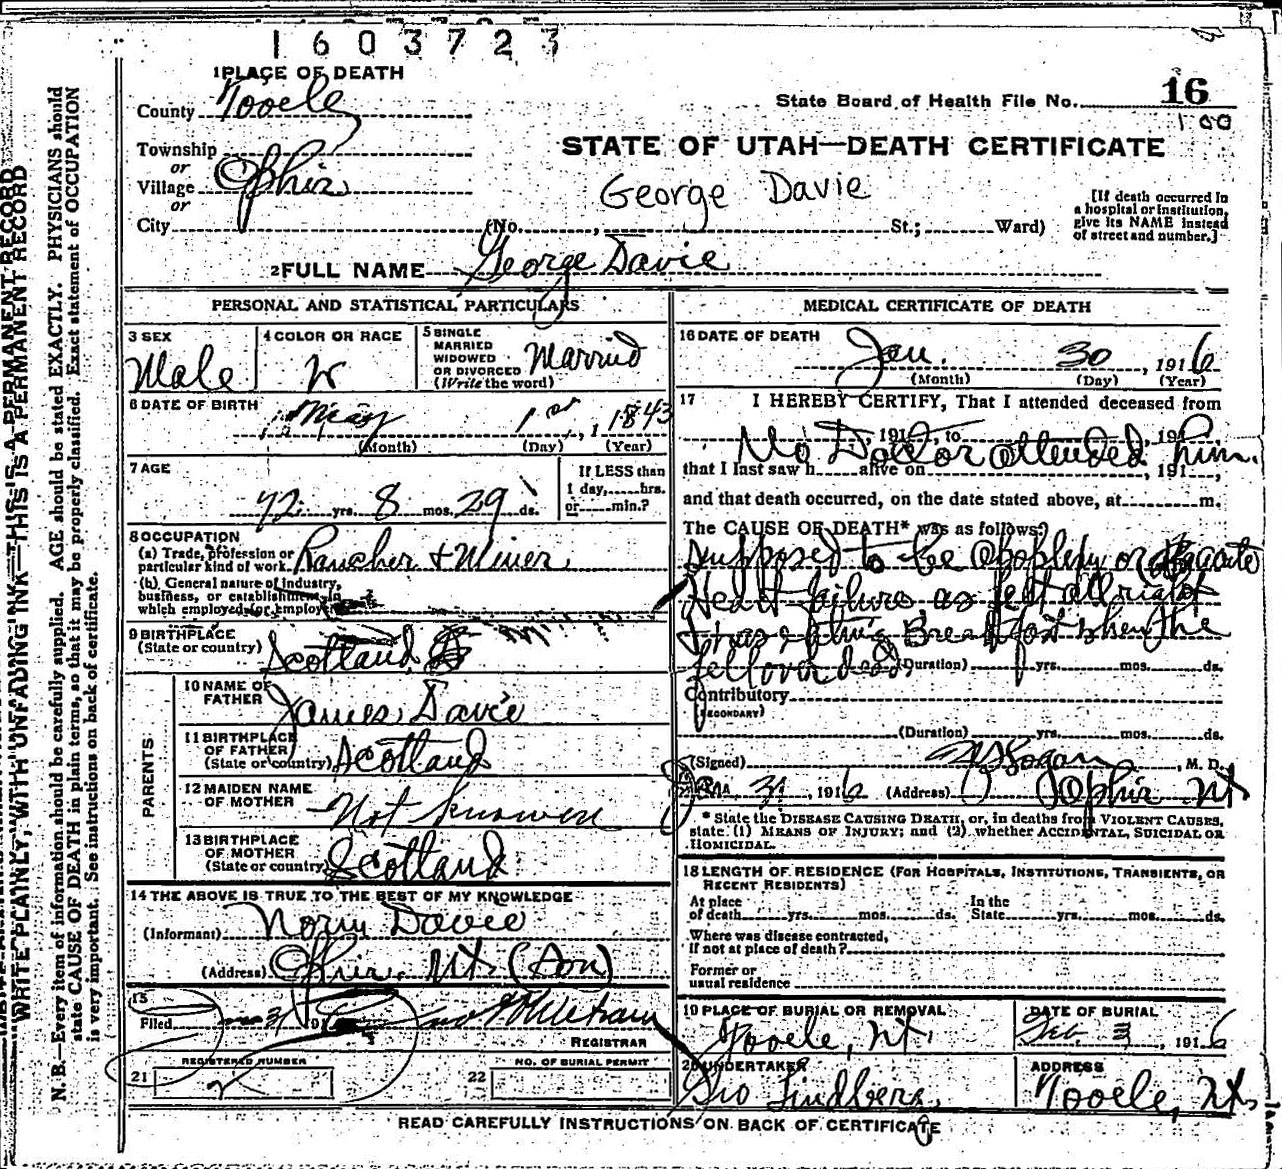 1603723
1 PLACE OF DEATH
County Tooele
State Board of Health File No. 16
100
Township
or
Village Ophir
or
City
STATE OF UTAH—DEATH CERTIFICATE
George Davie
(No. , St.; Ward)
[If death occurred in
a hospital or institution,
give its NAME instead
of street and number.]
2 FULL NAME George Davie
PERSONAL AND STATISTICAL PARTICULARS
3 SEX
Male
4 COLOR OR RACE
W
5 SINGLE
MARRIED
WIDOWED
OR DIVORCED
(Write the word)
Married
6 DATE OF BIRTH
May 1st, 1843
(Month) (Day) (Year)
7 AGE
72 yrs. 8 mos. 29 ds.
If LESS than
1 day, hrs.
or min.?
8 OCCUPATION
(a) Trade, profession or
particular kind of work Rancher & Miner
(b) General nature of industry,
business, or establishment in
which employed (or employer)
9 BIRTHPLACE
(State or country) Scotland
PARENTS
10 NAME OF
FATHER James Davie
11 BIRTHPLACE
OF FATHER
(State or country) Scotland
12 MAIDEN NAME
OF MOTHER Not known
13 BIRTHPLACE
OF MOTHER
(State or country) Scotland
14 THE ABOVE IS TRUE TO THE BEST OF MY KNOWLEDGE
(Informant) Davie
(Address) Ophir, Ut. (Son)
15
Filed
REGISTRAR
REGISTERED NUMBER
21 2
NO. OF BURIAL PERMIT
22
MEDICAL CERTIFICATE OF DEATH
16 DATE OF DEATH
Jan. 30, 1916
(Month) (Day) (Year)
17 I HEREBY CERTIFY, That I attended deceased from
, 191 , to , 191 ,
No Doctor attended him.
that I last saw h alive on , 191 ,
and that death occurred, on the date stated above, at m.
The CAUSE OF DEATH* was as follows:
Supposed to be apoplexy or acute
Heart failure, as felt allright
& was eating Breakfast when he
fell over dead (Duration) yrs. mos. ds.
Contributory
(SECONDARY)
(Duration) yrs. mos. ds.
(Signed) Logan, M. D.
31, 1916 (Address) Ophir Ut
* State the DISEASE CAUSING DEATH, or, in deaths from VIOLENT CAUSES,
state (1) MEANS OF INJURY; and (2) whether ACCIDENTAL, SUICIDAL OR
HOMICIDAL.
18 LENGTH OF RESIDENCE (FOR HOSPITALS, INSTITUTIONS, TRANSIENTS, OR
RECENT RESIDENTS)
At place
of death yrs. mos. ds.
In the
State yrs. mos. ds.
Where was disease contracted,
if not at place of death?
Former or
usual residence
19 PLACE OF BURIAL OR REMOVAL
Tooele, Ut.
DATE OF BURIAL
Feb. 3, 1916
20 UNDERTAKER
Geo Lindberg
ADDRESS
Tooele, Ut.
READ CAREFULLY INSTRUCTIONS ON BACK OF CERTIFICATE
WRITE PLAINLY, WITH UNFADING INK—THIS IS A PERMANENT RECORD
N. B.—Every item of information should be carefully supplied. AGE should be stated EXACTLY. PHYSICIANS should
state CAUSE OF DEATH in plain terms, so that it may be properly classified. Exact statement of OCCUPATION
is very important. See instructions on back of certificate.